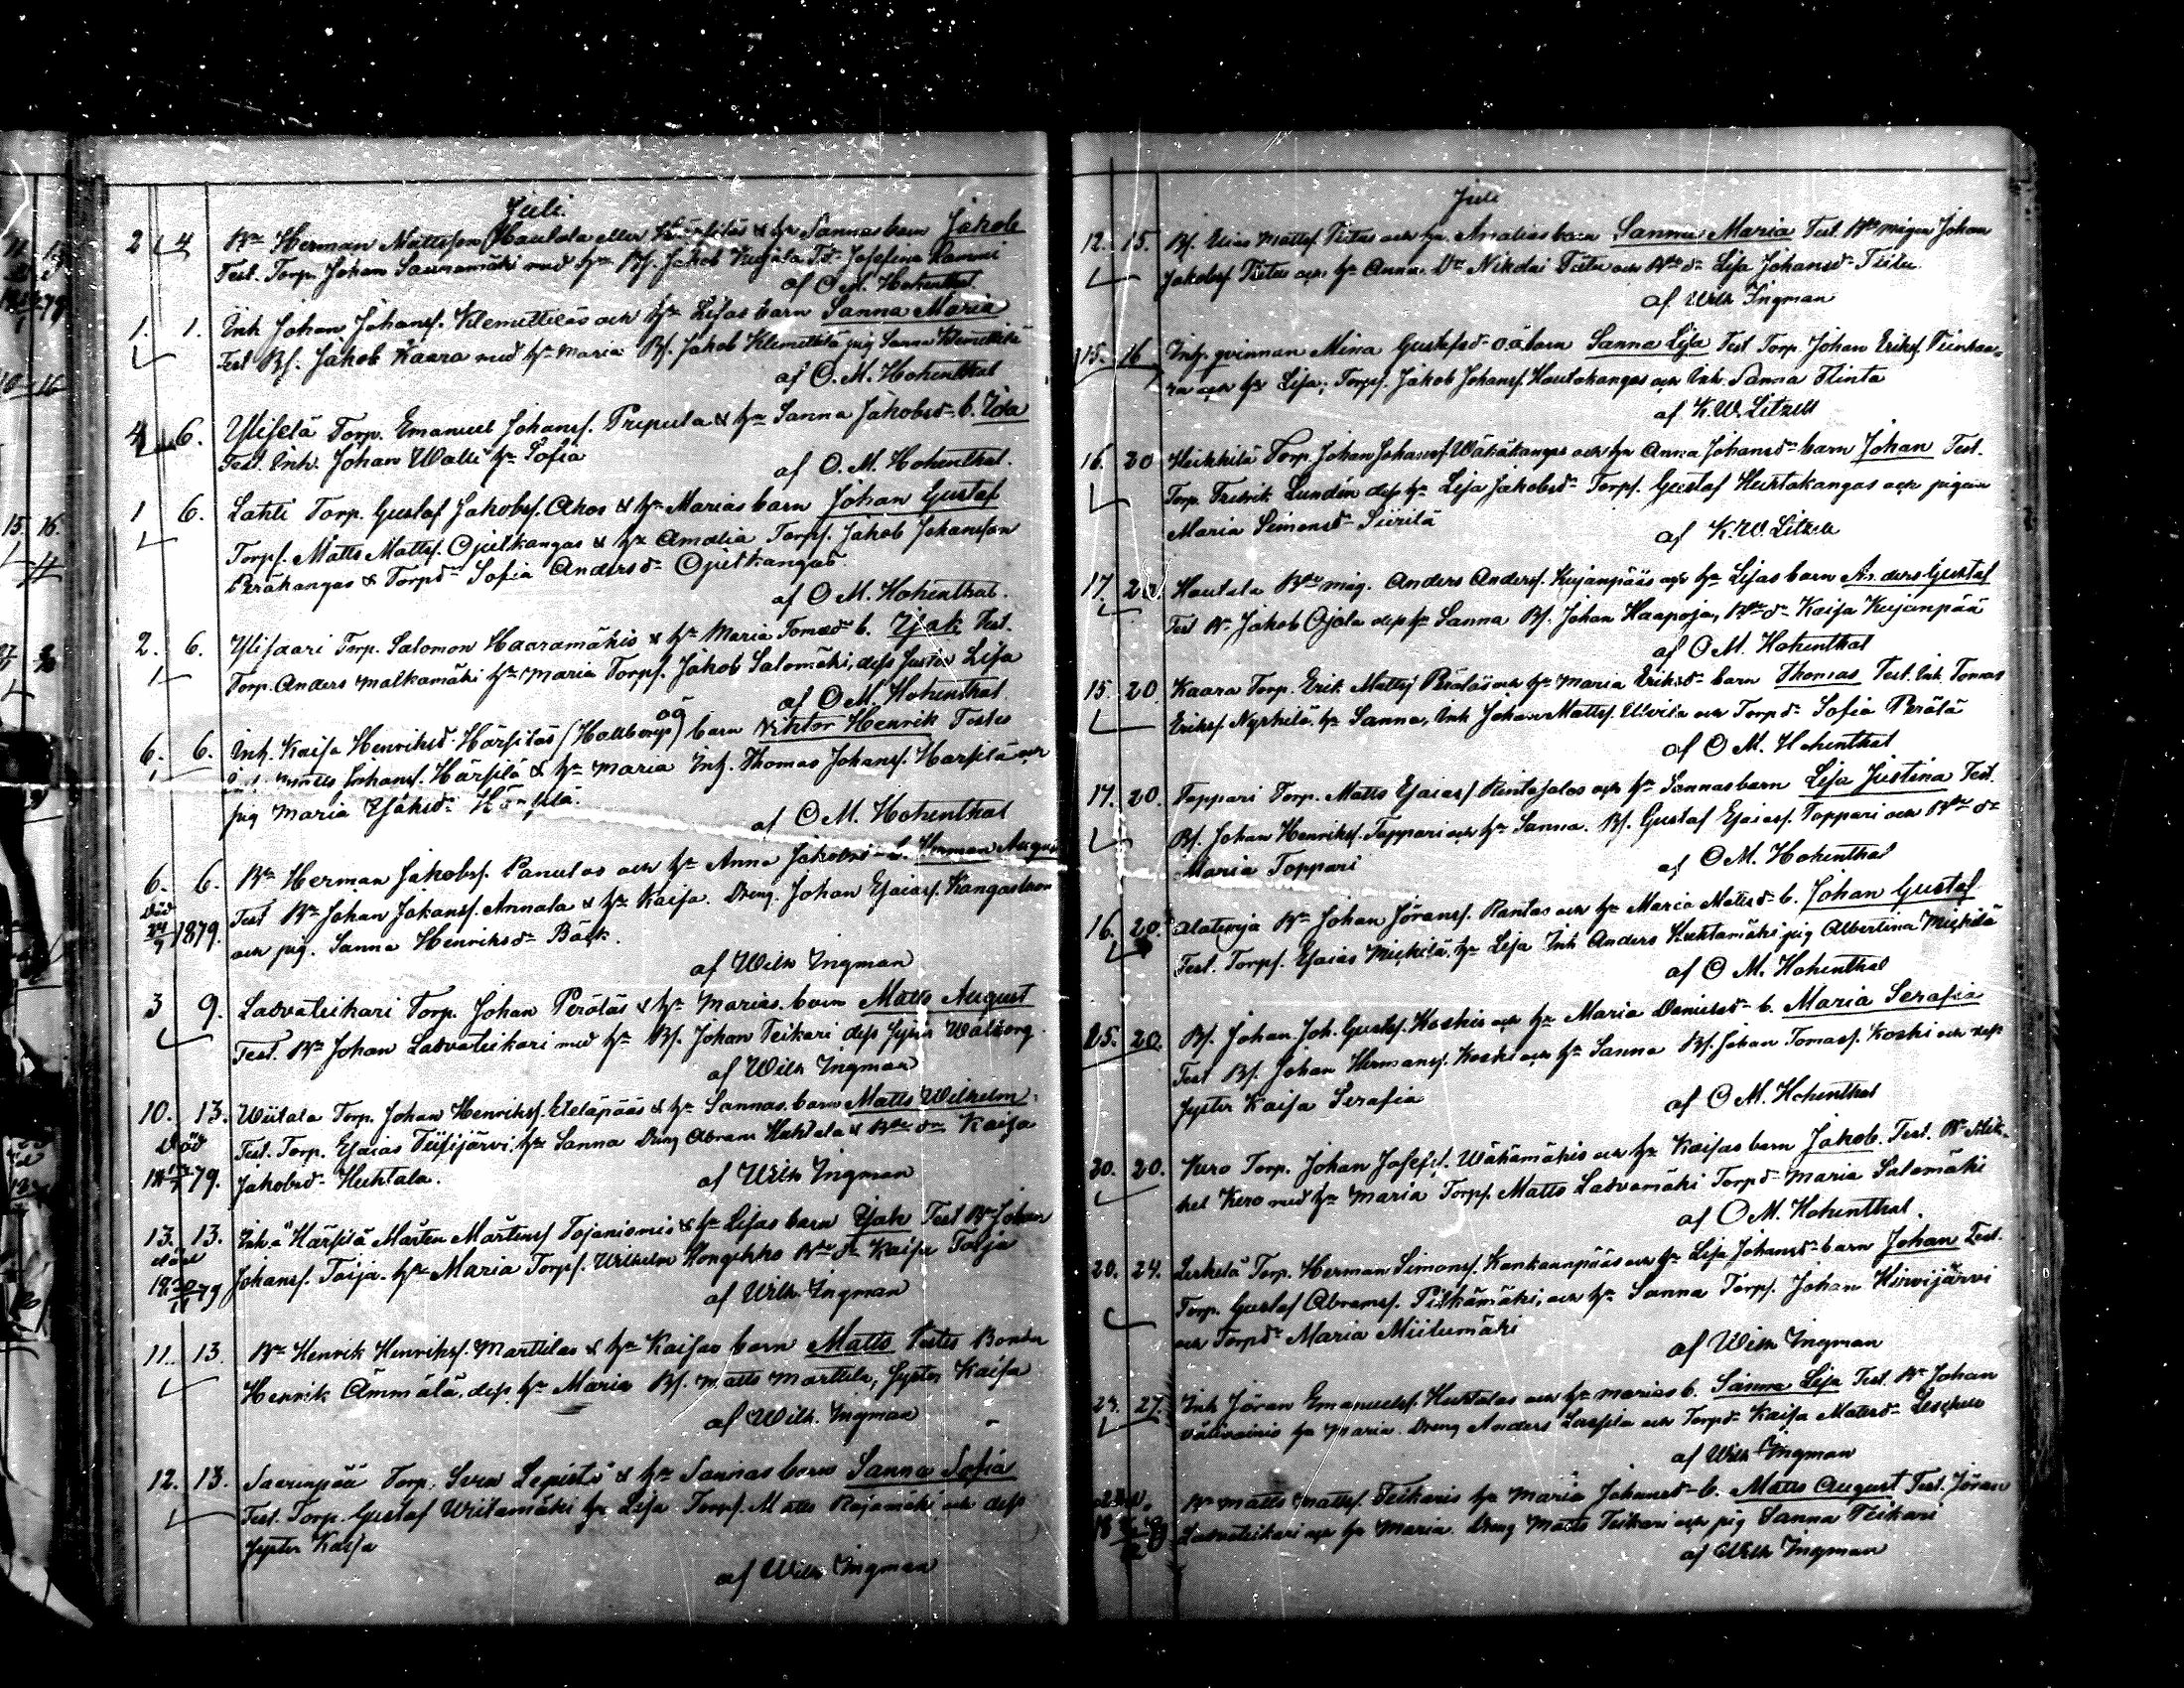 Juli.
2 4 Bn Herman Mattsson Hautala eller Härsiläs & hn Sannas barn Jakob
Test. Torp. Johan Saunamäki med hn Bs. Jakob Kujala Td Josefina Rammi
af O.M. Hohenthal
1. 1. Inh Johan Johanss. Klemettiläs och hn Lisas barn Sanna Maria
Test Bs. Jakob Kaara med hn Maria Bs. Jakob Klemettilä pig Sanna Klemettilä
af O.M. Hohenthal
4 6. Yliselä Torp. Emanuel Johanss. Prepula & hn Sanna Jakobsd b. Ida
Test. Inh. Johan Walli hn Sofia
af O.M. Hohenthal.
1 6. Lahti Torp. Gustaf Jakobss. Ahos & hn Marias barn Johan Gustaf
Torps. Matts Mattss. Ojutkangas & hn Amalia Torps. Jakob Johansson
Peräkangas & Torpd Sofia Andersd Ojutkangas.
af O M. Hohenthal.
2. 6. Ylisaari Torp. Salomon Haaramäkis & hn Maria Tomasd b. Isak Test.
Torp. Anders Malkamäki hn Maria Torps. Jakob Salomäki, dess hustru Lisa
af O M. Hohenthal
6. 6. Inh. Kaisa Henriksd Härsiläs (Hallbergs) oä barn Viktor Henrik Testes
Matts Johanss. Härsilä & hn Maria Inh. Thomas Johanss. Härsilä och
pig Maria Isaksd Härsilä.
af O M. Hohenthal
6. 6. Bn Herman Jakobss. Panulas och hn Anna Jakobsd b. Herman August
Död 24/9 1879. Test Bn Johan Johanss. Annala & hn Kaisa. Dreng. Johan Esaiass. Kangas
och pig. Sanna Henriksd Bäck.
af Wilh Ingman
3 9. Ladvateikari Torp. Johan Peräläs & hn Marias. barn Matts August
Test. Bn Johan Ladvateikari med hn Bs. Johan Teikari dess syster Walborg.
af Wilh Ingman
10. 13. Wiitala Torp. Johan Henrikss. Eteläpääs & hn Sannas. barn Matts Wilhelm.
Död Test. Torp. Esaias Tiisijärvi, hn Sanna Dreng Abram Huhtala & Bnd Kaisa
18 79. Jakobsd Huhtala.
af Wilh Ingman
13. 13. Inh. å Härsilä Mårten Mårtenss Tojanismis & hn Lisas barn Isak Test Bn Johan
död 18 79 Johanss. Toija. hn Maria Torps. Wilhelm Hongikko Bnd Kaisa Toija
af Wilh. Ingman
11. 13. Bn Henrik Henrikss. Marttilas & hn Kaisas barn Matts Testes Bonden
Henrik Ämmälä, dess hn Maria Bs. Matts Marttila, syster Kaisa
af Wilh. Ingman
12. 13. Saarenpää Torp. Sven Lepistö & hn Sannas barn Sanna Sofia
Test. Torp. Gustaf Wiitamäki hn Lisa Torps. Matts Rajamäki och dess
syster Kaisa
af Wilh Ingman
Juli
12. 15. Bs. Elias Mattss. Tiitus och hn. Amalias barn Sanna Maria Test. Bns mågen Johan
Jakobss. Tiitus och hn Anna. Dr. Nikolai Tiitu och Bnd Lisa Johansd Tiitu.
af Wilh Ingman
15. 16 Inh. qvinnan Mina Gustafsd o.ä. barn Sanna Lisa Test Torp. Johan Erikss. Teinhaa-
ra och hn Lisa, Torps. Jakob Johanss. Hautakangas och Inh. Sanna Flinta
af K. W. Litzell
16. 20 Heikkilä Torp. Johan Johanss. Wähäkangas och hn Anna Johansd barn Johan Test.
Torp. Fredrik Lundén dess hn Lisa Jakobsd Torps. Gustaf Huitakangas och pigan
Maria Simonsd Siirilä
af K. W. Litzell
17. 20. Hautala Bns måg. Anders Anderss. Kujanpääs och hn Lisas barn Anders Gustaf
Test Bn Jakob Ojala dess hn Sanna Bs. Johan Haapoja, Bnd Kaisa Kujanpää
af O M. Hohenthal
15. 20. Kaara Torp. Erik Mattss Peräläs och hn Maria Eriksd barn Thomas Test. Inh Tomas
Erikss. Nyrhilä hn Sanna, Inh Johan Mattss. Uivila och Torpd Sofia Perälä
af O M. Hohenthal
17. 20. Toppari Torp. Matts Esaiass Rintasalos och hn Sannas barn Lisa Justina Test.
Bs. Johan Henrikss. Toppari och hn Sanna. Bs. Gustaf Esaiass. Toppari och Bnd
Maria Toppari
af O M. Hohenthal
16. 20. Alatenja Bn Johan Jöranss. Rantas och hn Maria Mattsd b. Johan Gustaf
Test. Torps. Esaias Mickilä, hn Lisa Inh Anders Huhtamäki pig Albertina Mickilä
af O M. Hohenthal
15. 20. Bs. Johan Joh. Gustafs. Koskis och hn Maria Danielsd b. Maria Serafia
Test Bs. Johan Hermanss. Koski och hn Sanna Bs. Johan Tomass. Koski och dess
syster Kaisa Serafia
af O M. Hohenthal
20. 20. Kero Torp. Johan Josefss. Wähämäkis och hn Kaisas barn Jakob. Test. Bn Mik-
kel Kero med hn Maria Torps. Matts Ladvamäki Torpd Maria Salomäki
af O M. Hohenthal.
20. 24. Leskelä Torp. Herman Simonss. Kankaanpääs och hn Lisa Johansd barn Johan Test.
Torp. Gustaf Abramss. Pitkämäki, och hn Sanna Torps. Johan Hirvijärvi
och Torpd Maria Miilumäki
af Wilh Ingman
24. 27. Inh Jöran Emanuelss. Huhtalas och hn Marias b. Sanna Lisa Test. Bn Johan
Välivainio hn Maria. Dreng Anders Lassila och Torpd Kaisa Matsd
af Wilh Ingman
Bn Matts Mattss. Teikaris hn Maria Johansd b. Matts August Test. Jöran
Ladvateikari och hn Maria. Dreng Matts Teikari och pig Sanna Teikari
af Wilh Ingman